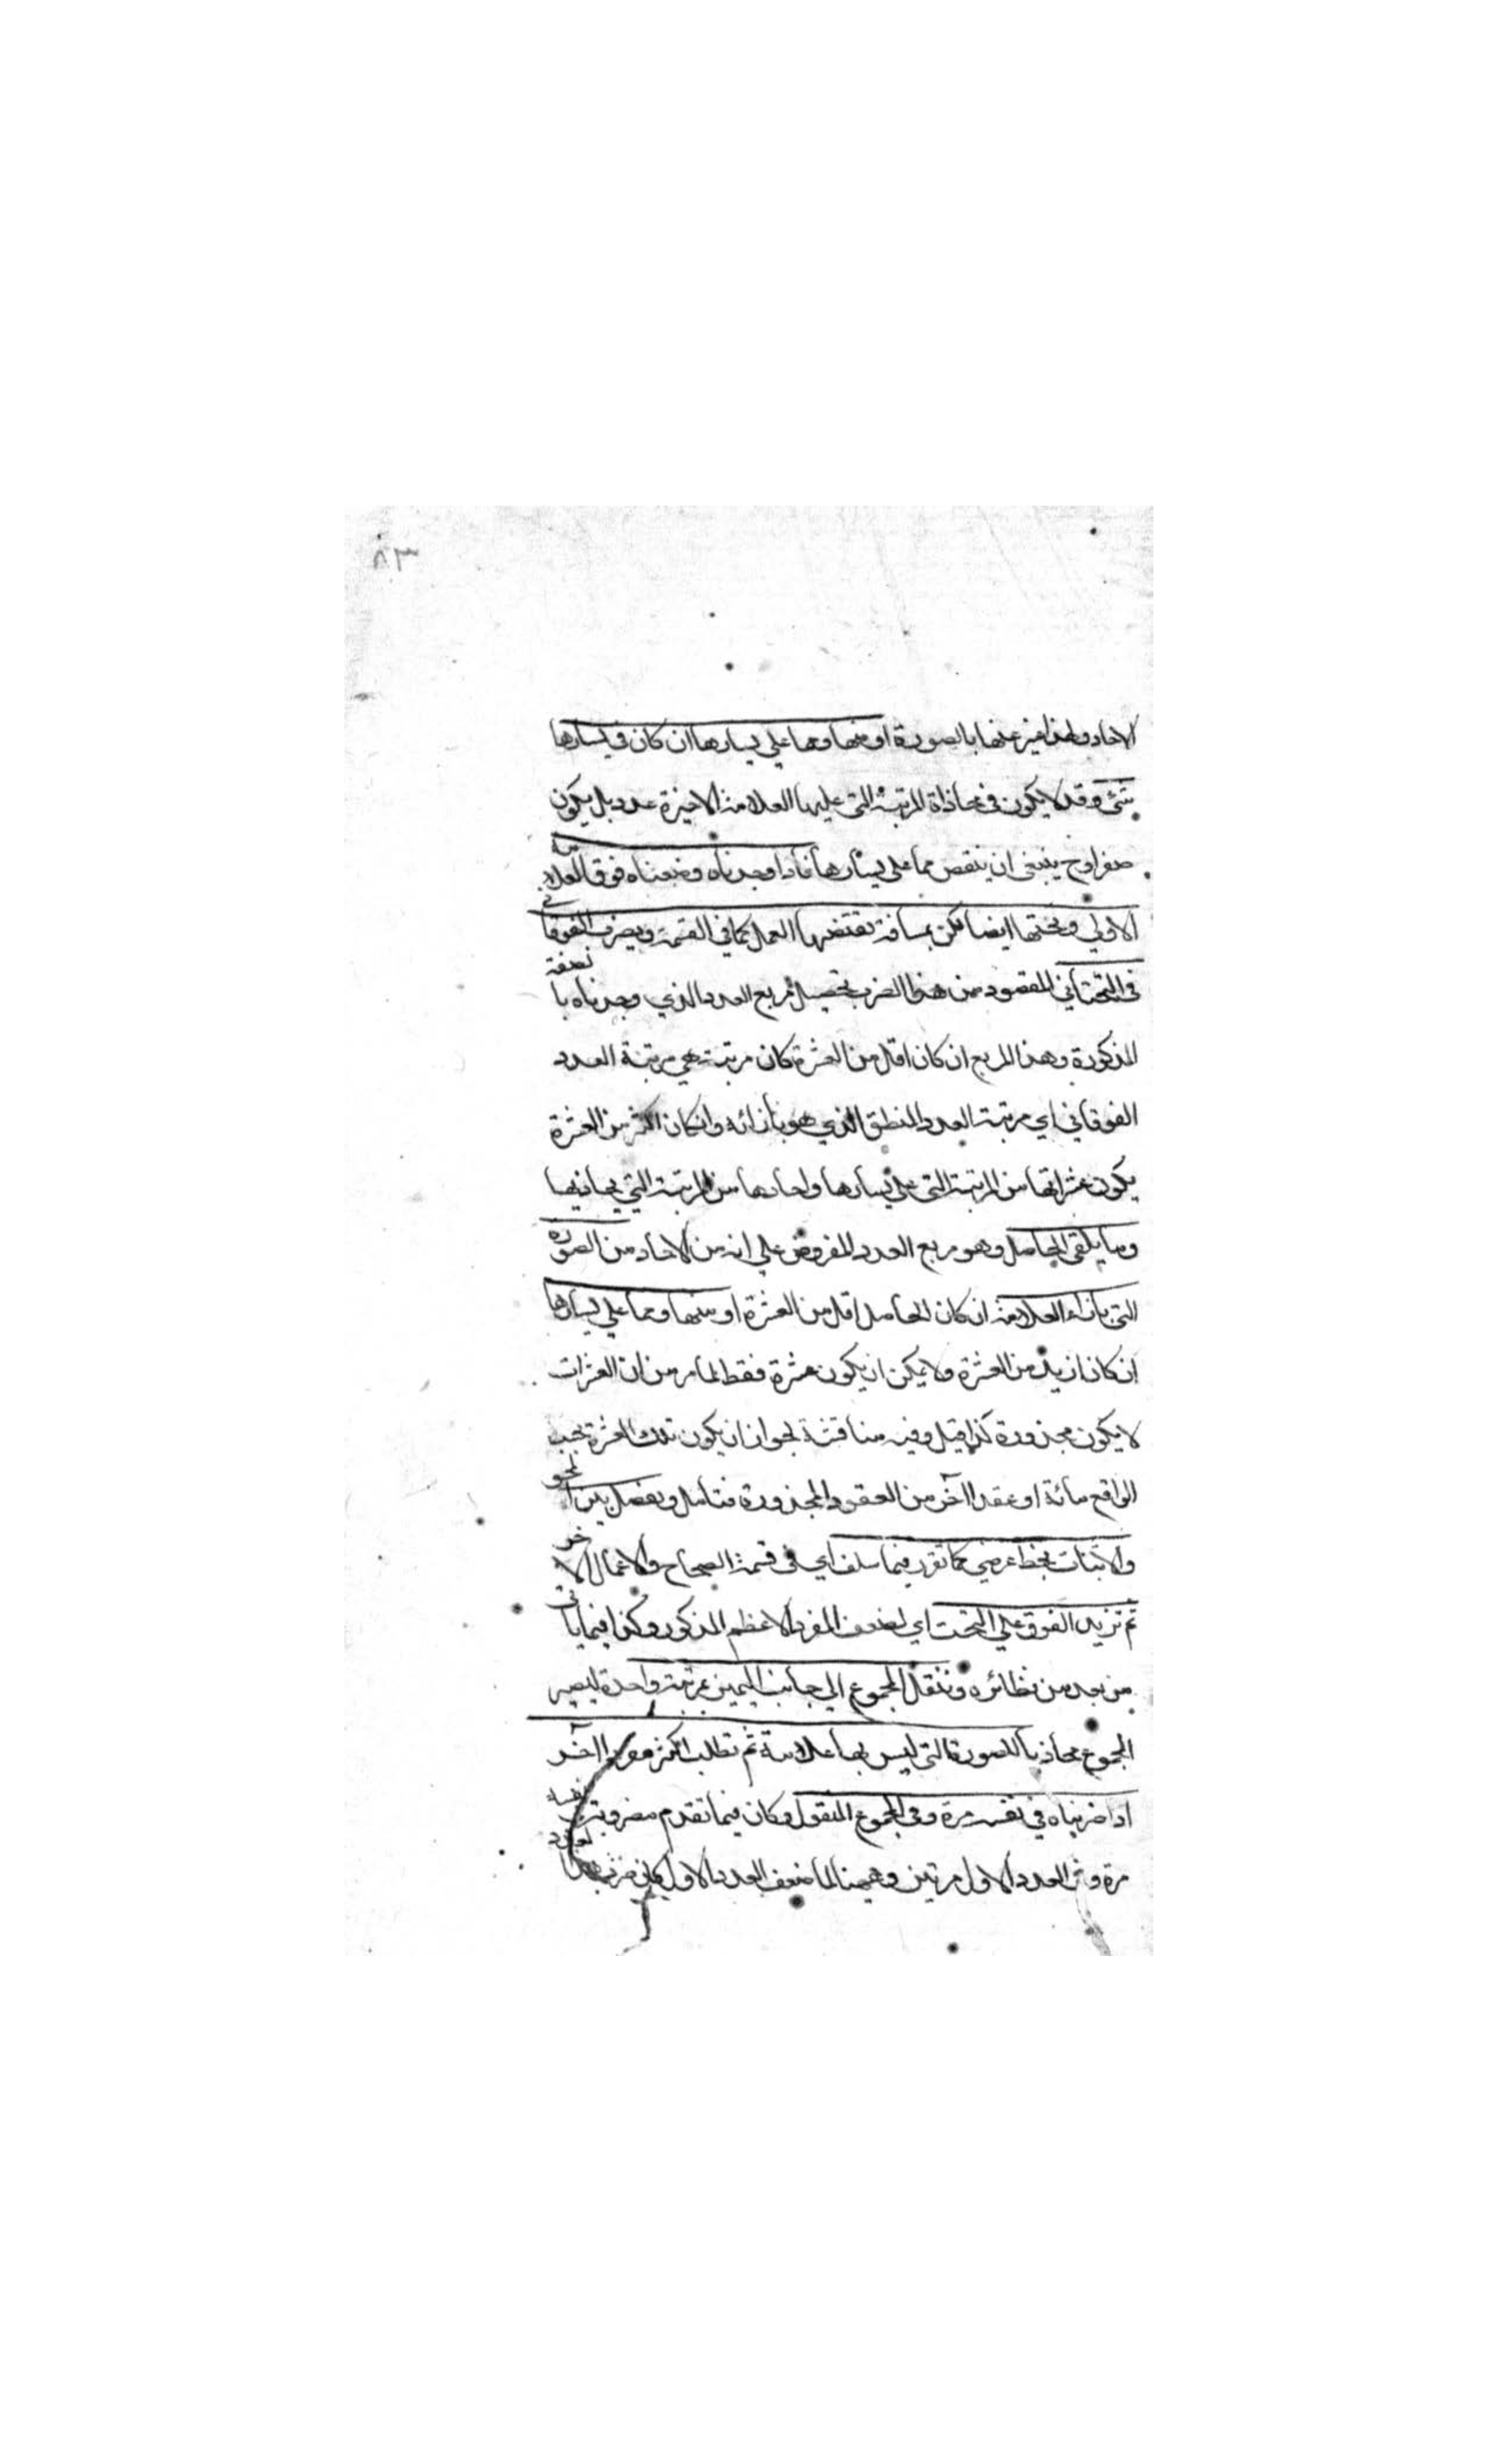 ٨٣
الاحاد ولهذا عبر عنها بالصورة او منها ومما علي يسارها ان كان في يسارها
شئ وقد لا يكون في محاذاة المرتبة التي عليها العلامة الاخيرة عدد بل يكون
صفرا وح ينبغي ان ينقص مما علي يسارها فاذا وجدناه وضعناه فوق العلامة
الاولي وتحتها ايضا لكن بمسافة تقتضيها العمل كما في القسمة ويضرب الفوقاني
في التحتاني المقصود من هذا الضرب تحصيل مربع العدد الذي وجدناه بالصفة
المذكورة وهذا المربع ان كان اقل من العشرة كان مرتبته هي مرتبة العدد
الفوقاني اي مرتبة العدد المنطق الذي هو بازائه وان كان اكثر من العشرة
يكون عشراتها من المرتبة التي علي يسارها واحادها من المرتبة التي يحاذيها
وما يلقي الحاصل وهو مربع العدد المفروض علي انه من الاحاد من الصورة
التي بازاء العلامة ان كان الحاصل اقل من العشرة او منها ومما علي يسارها
ان كان ازيد من العشرة ولا يمكن ان يكون عشرة فقط لما مر من ان العشرات
لا يكون مجذورة كذا قيل وفيه مناقشة لجواز ان يكون تلك العشرة بحسب
الواقع مائة او عقدا آخر من العقود المجذورة فتأمل ويفصل بين المحو
والاثبات بخط عرضي كما تقرر فيما سلف اي في قسمة الصحاح والاعمال الاخر
ثم تزيد الفوق علي التحت اي لضعف المفرد الاعظم المذكور وكذا فيما ياتي
من بعد من نظائره وتنقل المجموع الي جانب اليمين بمرتبة واحدة ليصير
المجموع محاذيا للصورة التي ليس بها علامة ثم تطلب اكثر مفرد آخر
اذا ضربناه في نفسه مرة وفي المجموع المنقول وكان فيما تقدم مضروبه في نفسه
مرة وفي العدد الاول مرتين وههنا لما ضعف العدد الاول كان ضرب المفرد